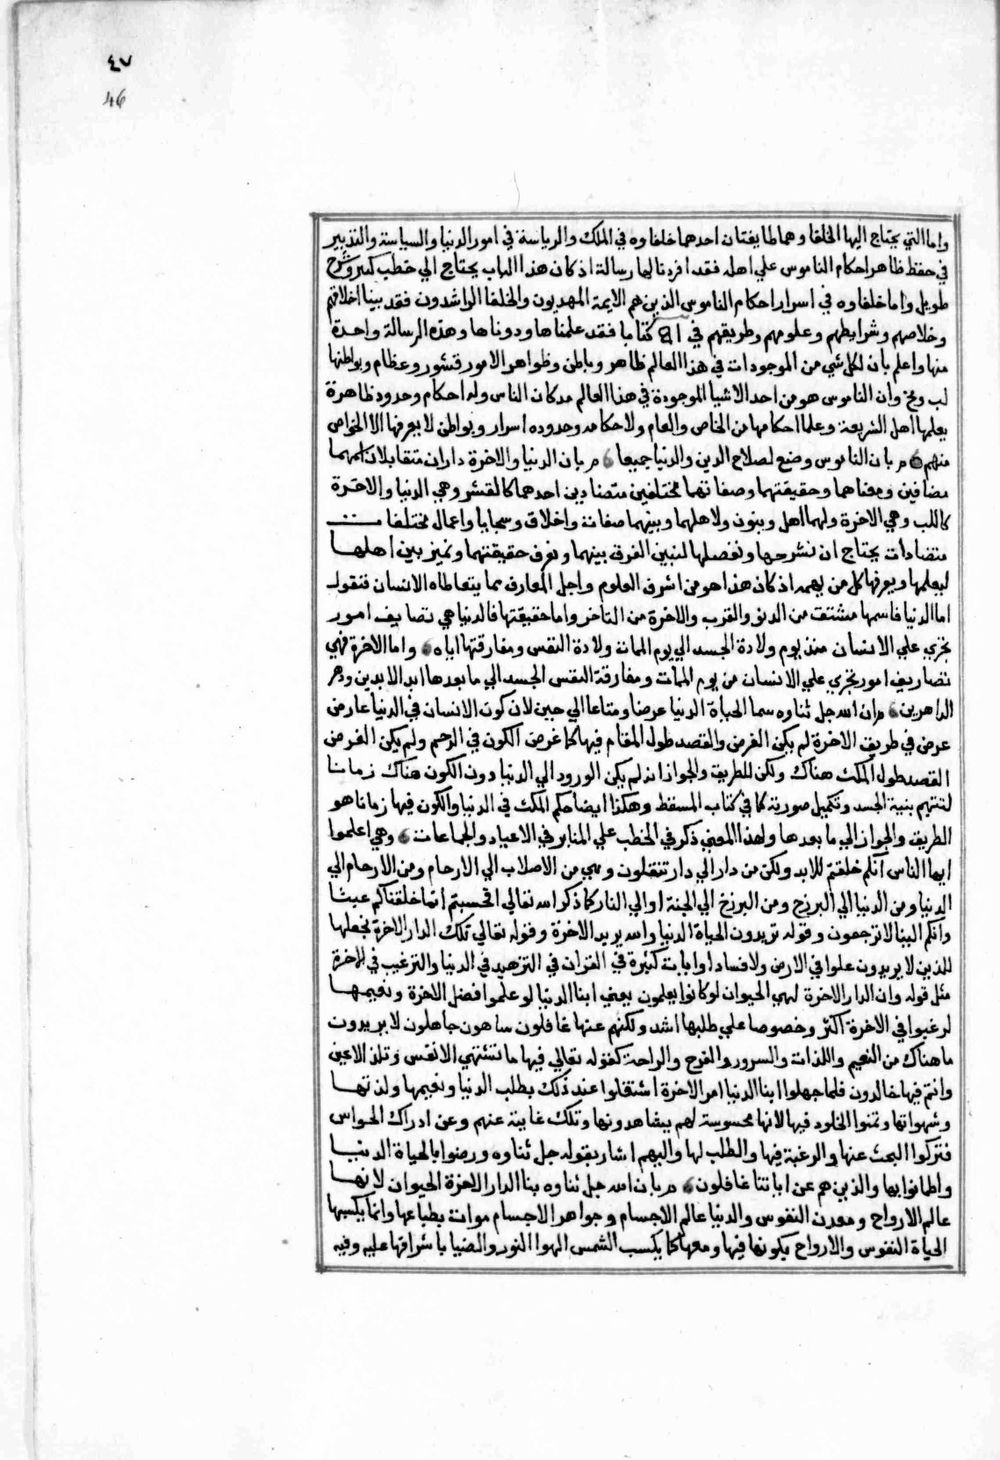 ٤٧
46
واما التي يحتاج اليها الخلفا وهما طايفتان احدهما خلفاوه في الملك والرياسة في امور الدنيا والسياسة والتدبير
في حفظ ظاهر احكام الناموس علي اهله فقد افردنا لها رسالة اذ كان هذا الباب يحتاج الي خطب كبير وشرح
طويل واما خلفاوه في اسرار احكام الناموس الذين هم الايمة المهديون والخلفا الراشدون فقد بينا اخلاقهم
وخلاصهم وشرايطهم وعلومهم وطريقهم في كتابا فقد علمناها ودوناها وهذه الرسالة واحدة
منها واعلم بان لكل شي من الموجودات في هذا العالم ظاهر وباطن وظواهر الامور قشور وعظام وبواطنها
لب ومخ وان الناموس هو من احد الاشيا الموجودة في هذا العالم مذ كان الناس وله احكام وحدود ظاهرة
يعلمها اهل الشريعة وعلما احكامها من الخاص والعام ولاحكامه وحدوده اسرار وبواطن لا يعرفها الا الخواص
منهم م بان الناموس وضع لصلاح الدين والدنيا جميعا م بان الدنيا والاخرة داران متقابلان اسمهما
مضافين ومعناهما وحقيقتهما وصفاتهما مختلفين متضادين احدهما كالقشر وهي الدنيا والاخرة
كاللب وهي الاخرة ولهما اهل وبنون ولاهلهما وبينهما صفات واخلاق وسجايا واعمال مختلفات
متضادات يحتاج ان نشرحها ونفصلها لنبين الفرق بينهما ونعرف حقيقتهما ونميز بين اهلها
ليعلمها ويعرفها كل من يهمه اذ كان هذا هو من اشرف العلوم واجل المعارف مما يتعاطاه الانسان فنقول
اما الدنيا فاسمها مشتقت من الدنو والقرب والاخرة من التاخر واما حقيقتها فالدنيا هي تصاريف امور
تجري علي الانسان منذ يوم ولادة الجسد الي يوم الممات ولادة النفس ومفارقتها اياه واما الاخرة فهي
تصاريف امور تجري علي الانسان من يوم الممات ومفارقة النفس الجسد الي ما بعدها ابد الابدين ودهر
الداهرين م ان الله جل ثناوه سما الحياة الدنيا عرضا ومتاعا الي حين لان كون الانسان في الدنيا عارض
عرض في طريق الاخرة لم يكن الغرض والقصد طول المقام فيها كما عرض الكون في الرحم ولم يكن الغرض
القصد طول المكث هناك ولكن للطريق والجواز اذ لم يكن الورود الي الدنيا دون الكون هناك زمانا
لتتهيم بنية الجسد وتكميل صورته كما في كتاب المسقط وهكذا ايضا حكم المكث في الدنيا والكون فيها زمانا هو
الطريق والجواز الي ما بعدها ولهذا المعني ذكر في الخطب علي المنابر في الاعياد والجماعات وهي اعلموا
ايها الناس انكم خلقتم للابد ولكن من دار الي دار تنتقلون ومي من الاصلاب الي الارحام ومن الارحام الي
الدنيا ومن الدنيا الي البرزخ ومن البرزخ الي الجنة او الي النار كما ذكر الله تعالي افحسبتم انما خلقناكم عبثا
وانكم الينا لا ترجعون وقوله تريدون الحياة الدنيا والله يريد الاخرة وقوله تعالي تلك الدار الاخرة نجعلها
للذين لا يريدون علوا في الارض ولا فسادا وايات كثيرة في القران في التزهيد في الدنيا والترغيب في الاخرة
مثل قوله وان الدار الاخرة لهي الحيوان لو كانوا يعلمون يعني ابنا الدنيا لو علموا فضل الاخرة ونعيمها
لرغبوا في الاخرة اكثر وخصوصا علي طلبها اشد ولكنهم عنها غافلون ساهون جاهلون لا يريدون
ما هناك من النعيم واللذات والسرور والفرح والراحة كقوله تعالي فيها ما تشتهي الانفس وتلذ الاعين
وانتم فيها خالدون فلما جهلوا ابنا الدنيا امر الاخرة اشتغلوا عند ذلك بطلب الدنيا ونعيمها ولذتها
وشهواتها وتمنوا الخلود فيها لانها محسوسة لهم يشاهدونها وتلك غايبة عنهم وعن ادراك الحواس
فتركوا البحث عنها والرغبة فيها والطلب لها واليهم اشار بقوله جل ثناوه ورضوا بالحياة الدنيا
واطمانوا بها والذين هم عن اياتنا غافلون م بان الله جل ثناوه بنا الدار الاخرة الحيوان لانها
عالم الارواح ومعدن النفوس والدنيا عالم الاجسام وجواهر الاجسام موات بطباعها وانما يكسبها
الحياة النفوس والارواح بكونها فيها ومعها كما يكسب الشمس الهوا النور والضيا باشراقها عليه وفيه